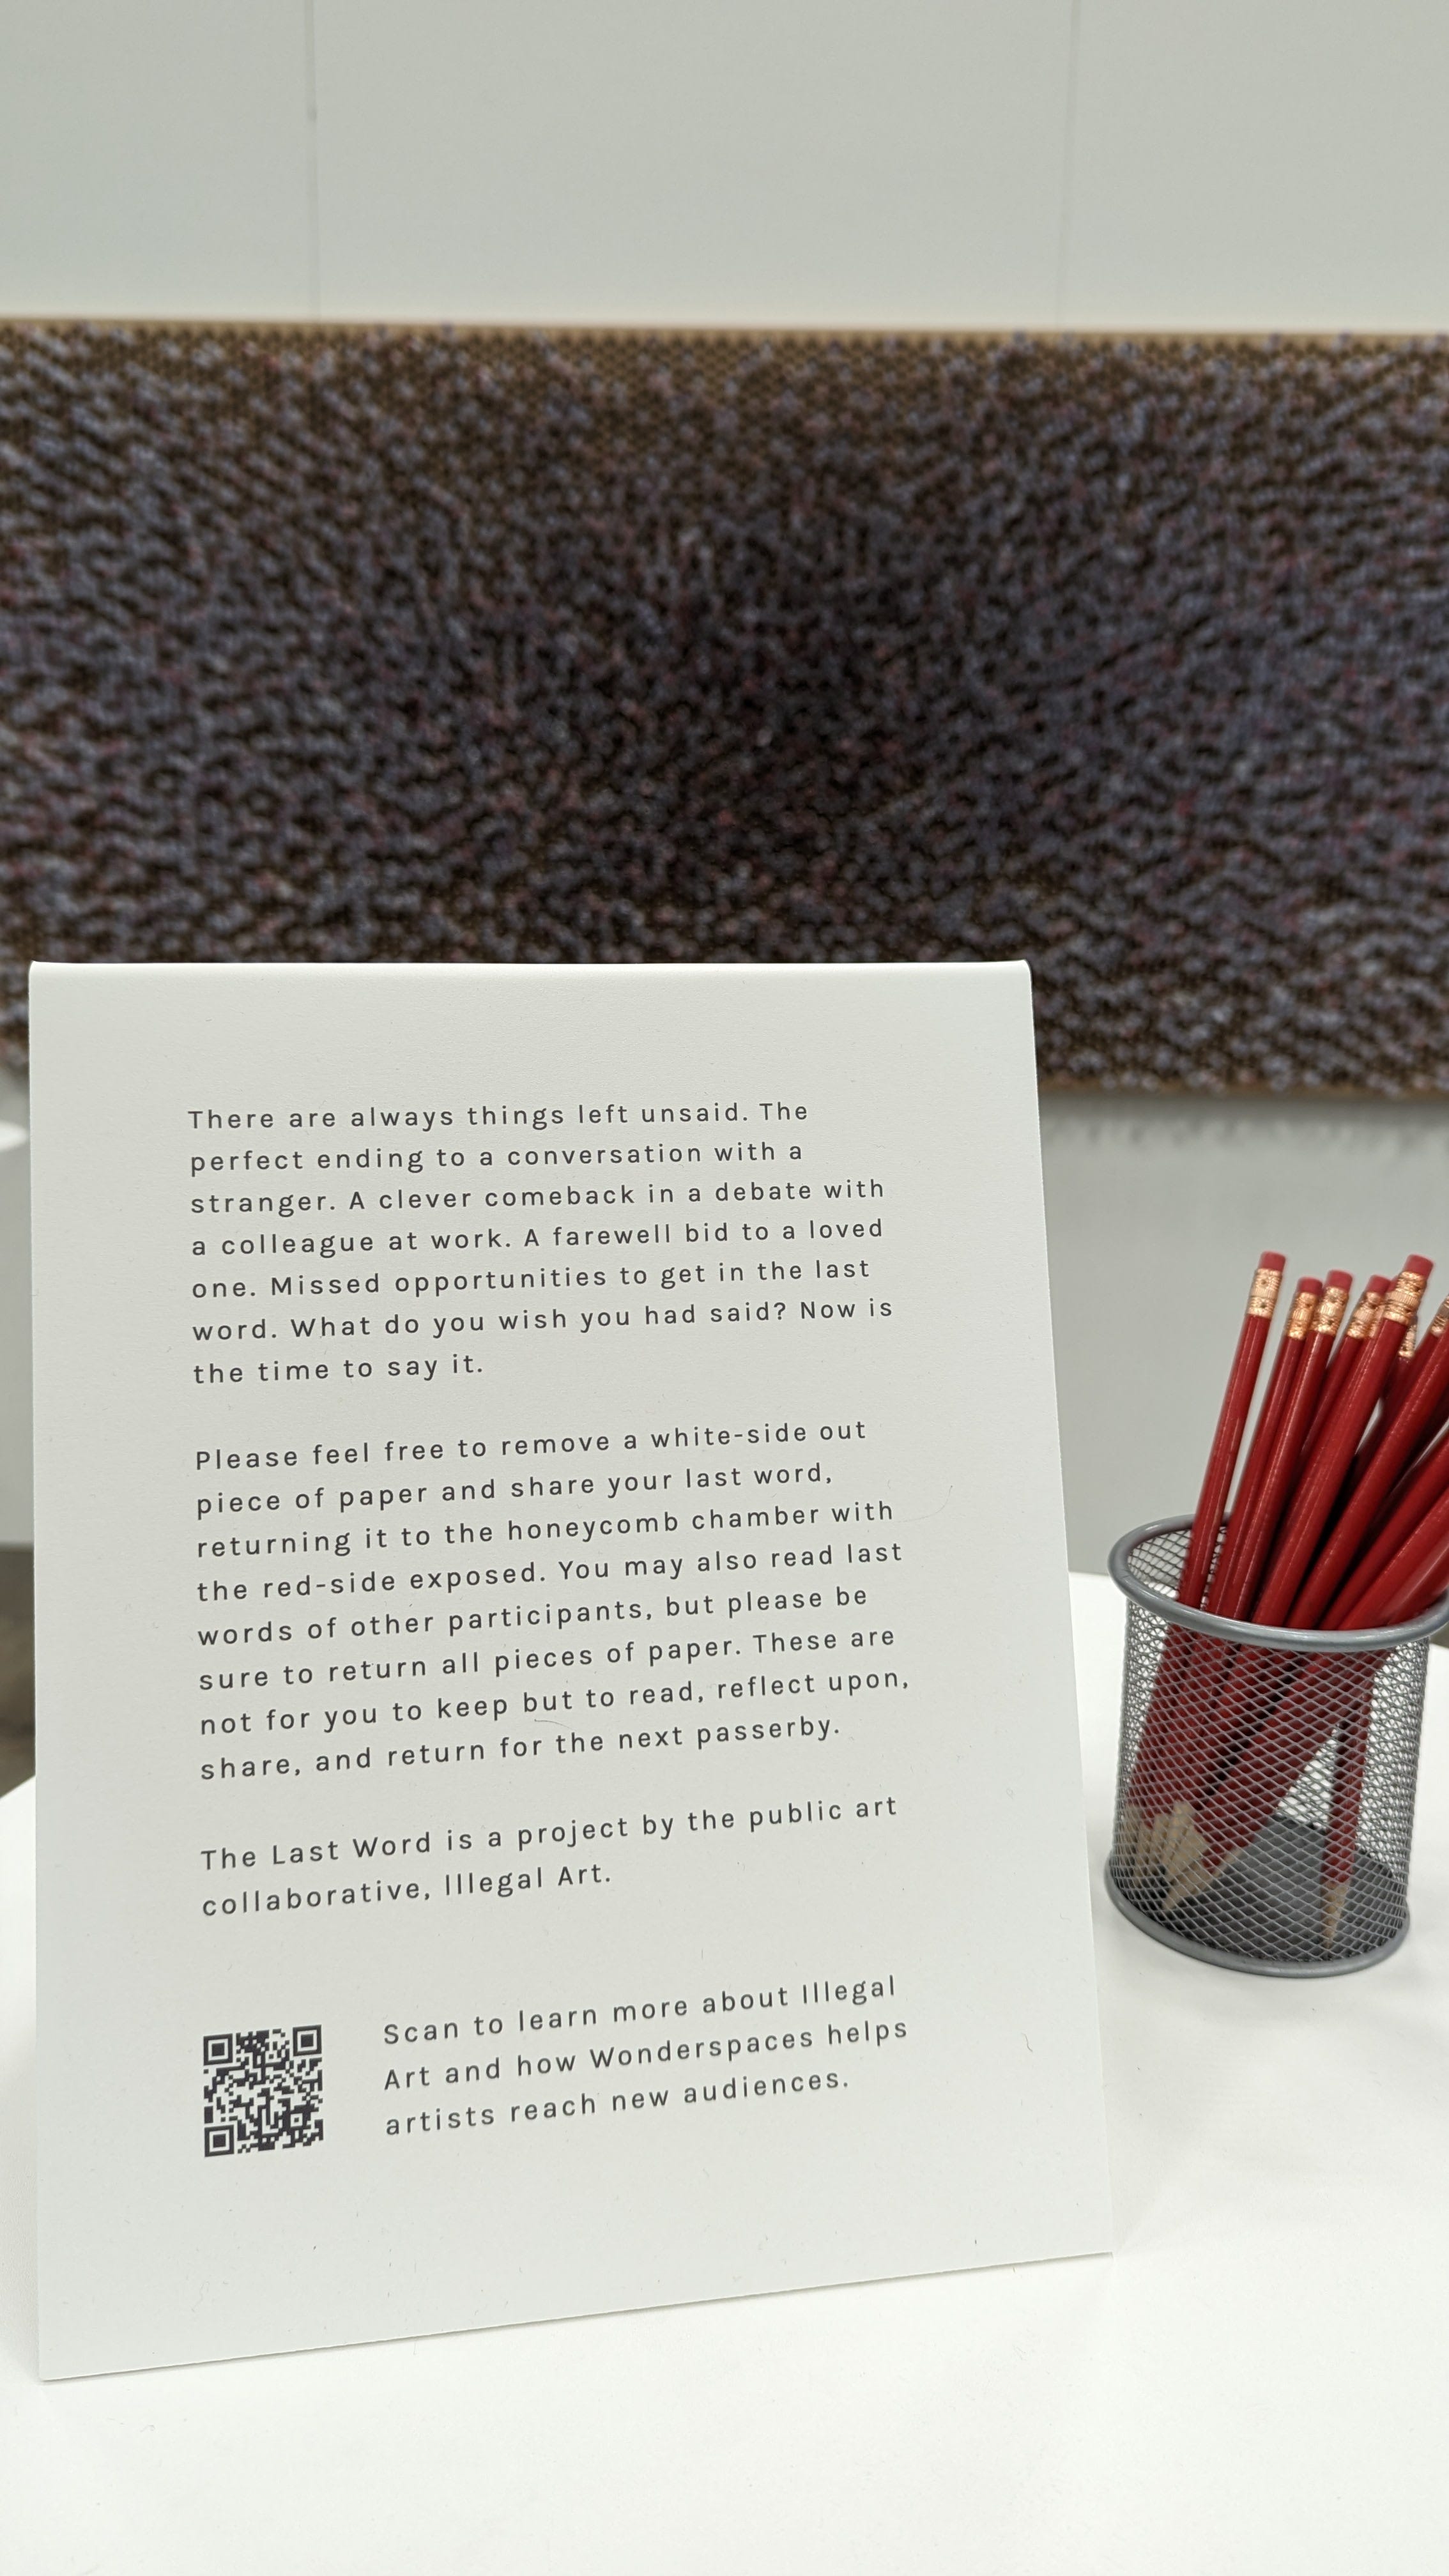 There are always things left unsaid. The
perfect ending to a conversation with a
stranger. A clever comeback in a debate with
a colleague at work. A farewell bid to a loved
one. Missed opportunities to get in the last
word. What do you wish you had said? Now is
the time to say it.
Please feel free to remove a white-side out
piece of paper and share your last word,
returning it to the honeycomb chamber with
the red-side exposed. You may also read last
words of other participants, but please be
sure to return all pieces of paper. These are
not for you to keep but to read, reflect upon,
share, and return for the next passerby.
The Last Word is a project by the public art
collaborative, Illegal Art.
Scan to learn more about Illegal
Art and how Wonderspaces helps
artists reach new audiences.